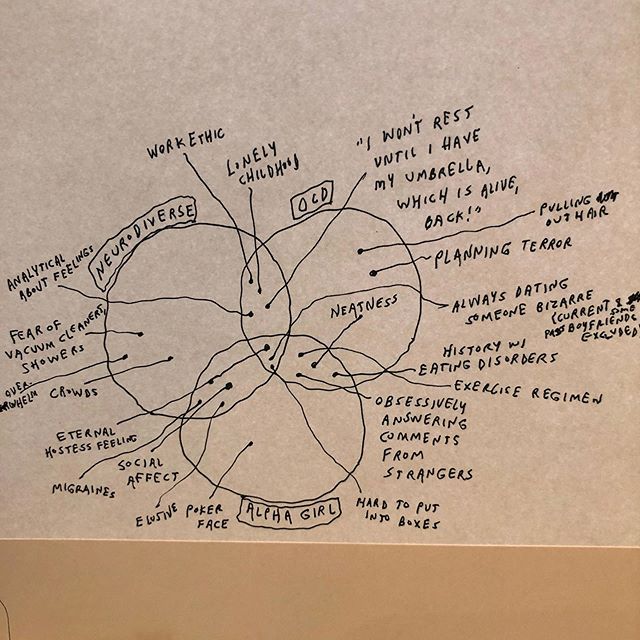 WORK ETHIC
LONELY
CHILDHOOD
"I WON'T REST
UNTIL I HAVE
MY UMBRELLA,
WHICH IS ALIVE,
BACK!"
OCD
NEURODIVERSE
PULLING
OUT HAIR
PLANNING TERROR
ANALYTICAL
ABOUT FEELINGS
NEATNESS
ALWAYS DATING
SOMEONE BIZARRE
(CURRENT &
SOME
PAST BOYFRIENDS
EXCLUDED)
FEAR OF
VACUUM CLEANERS,
SHOWERS
HISTORY W/
EATING DISORDERS
OVER-
WHELM
CROWDS
EXERCISE REGIMEN
OBSESSIVELY
ANSWERING
COMMENTS
FROM
STRANGERS
ETERNAL
HOSTESS FEELING
SOCIAL
AFFECT
MIGRAINES
ELUSIVE POKER
FACE
ALPHA GIRL
HARD TO PUT
INTO BOXES